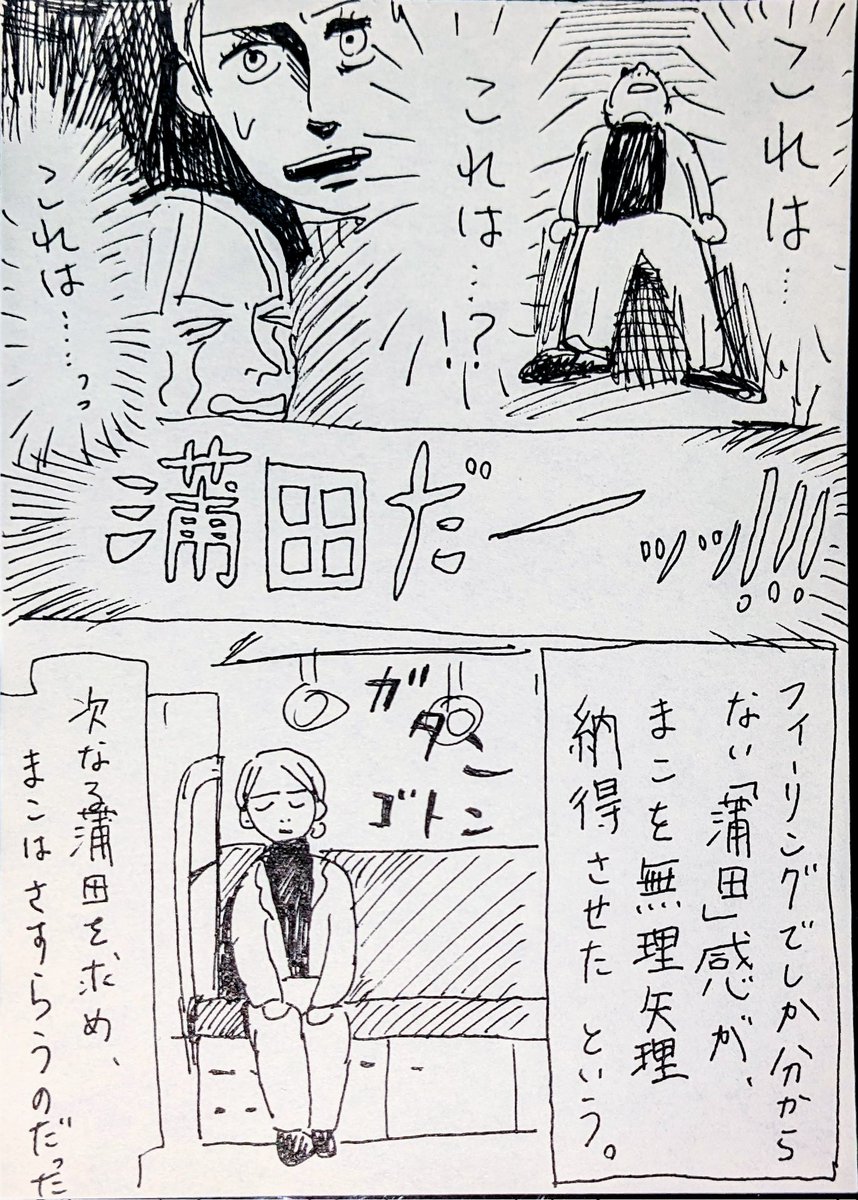 これは…
これは…!?
これは……っっ
蒲田だーッッ!!!
フィーリングでしか分から
ない「蒲田」感が、
まこを無理矢理
納得させたという。
ガタン
ゴトン
次なる蒲田を求め、
まこはさすらうのだった